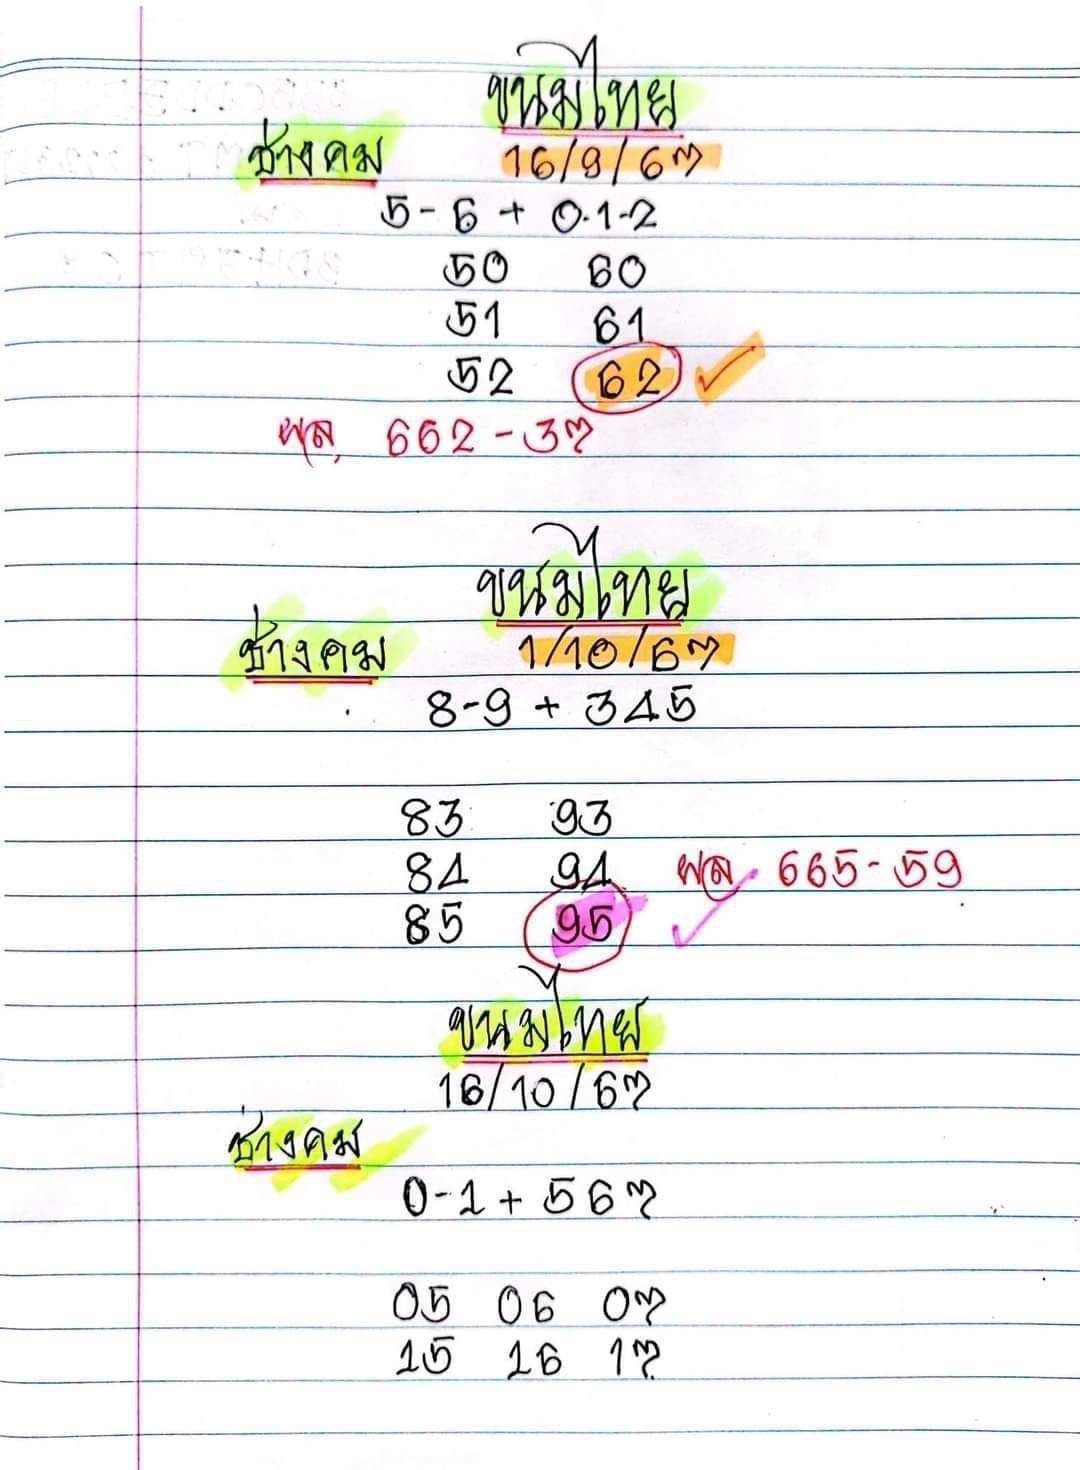 ขนมไทย
ช่างคม 16/9/67
5-6 + 0.1-2
50 60
51 61
52 62
ผล, 662-37
ขนมไทย
ช่างคม 1/10/67
8-9 + 345
83 93
84 94 ผล. 665-59
85 95
ขนมไทย
16/10/67
ช่างคม
0-1 + 567
05 06 07
15 16 17